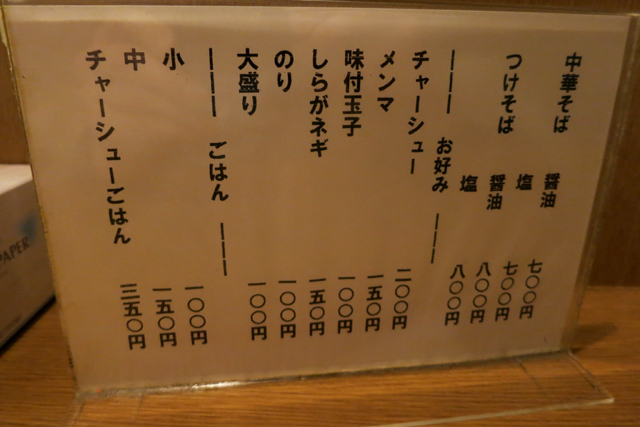 中華そば
醤油 七〇〇円
塩 七〇〇円
つけそば
醤油 八〇〇円
塩 八〇〇円
――― お好み ―――
チャーシュー 二〇〇円
メンマ 一五〇円
味付玉子 一〇〇円
しらがネギ 一五〇円
のり 一〇〇円
大盛り 一〇〇円
――― ごはん ―――
小 一〇〇円
中 一五〇円
チャーシューごはん 三五〇円
PAPER